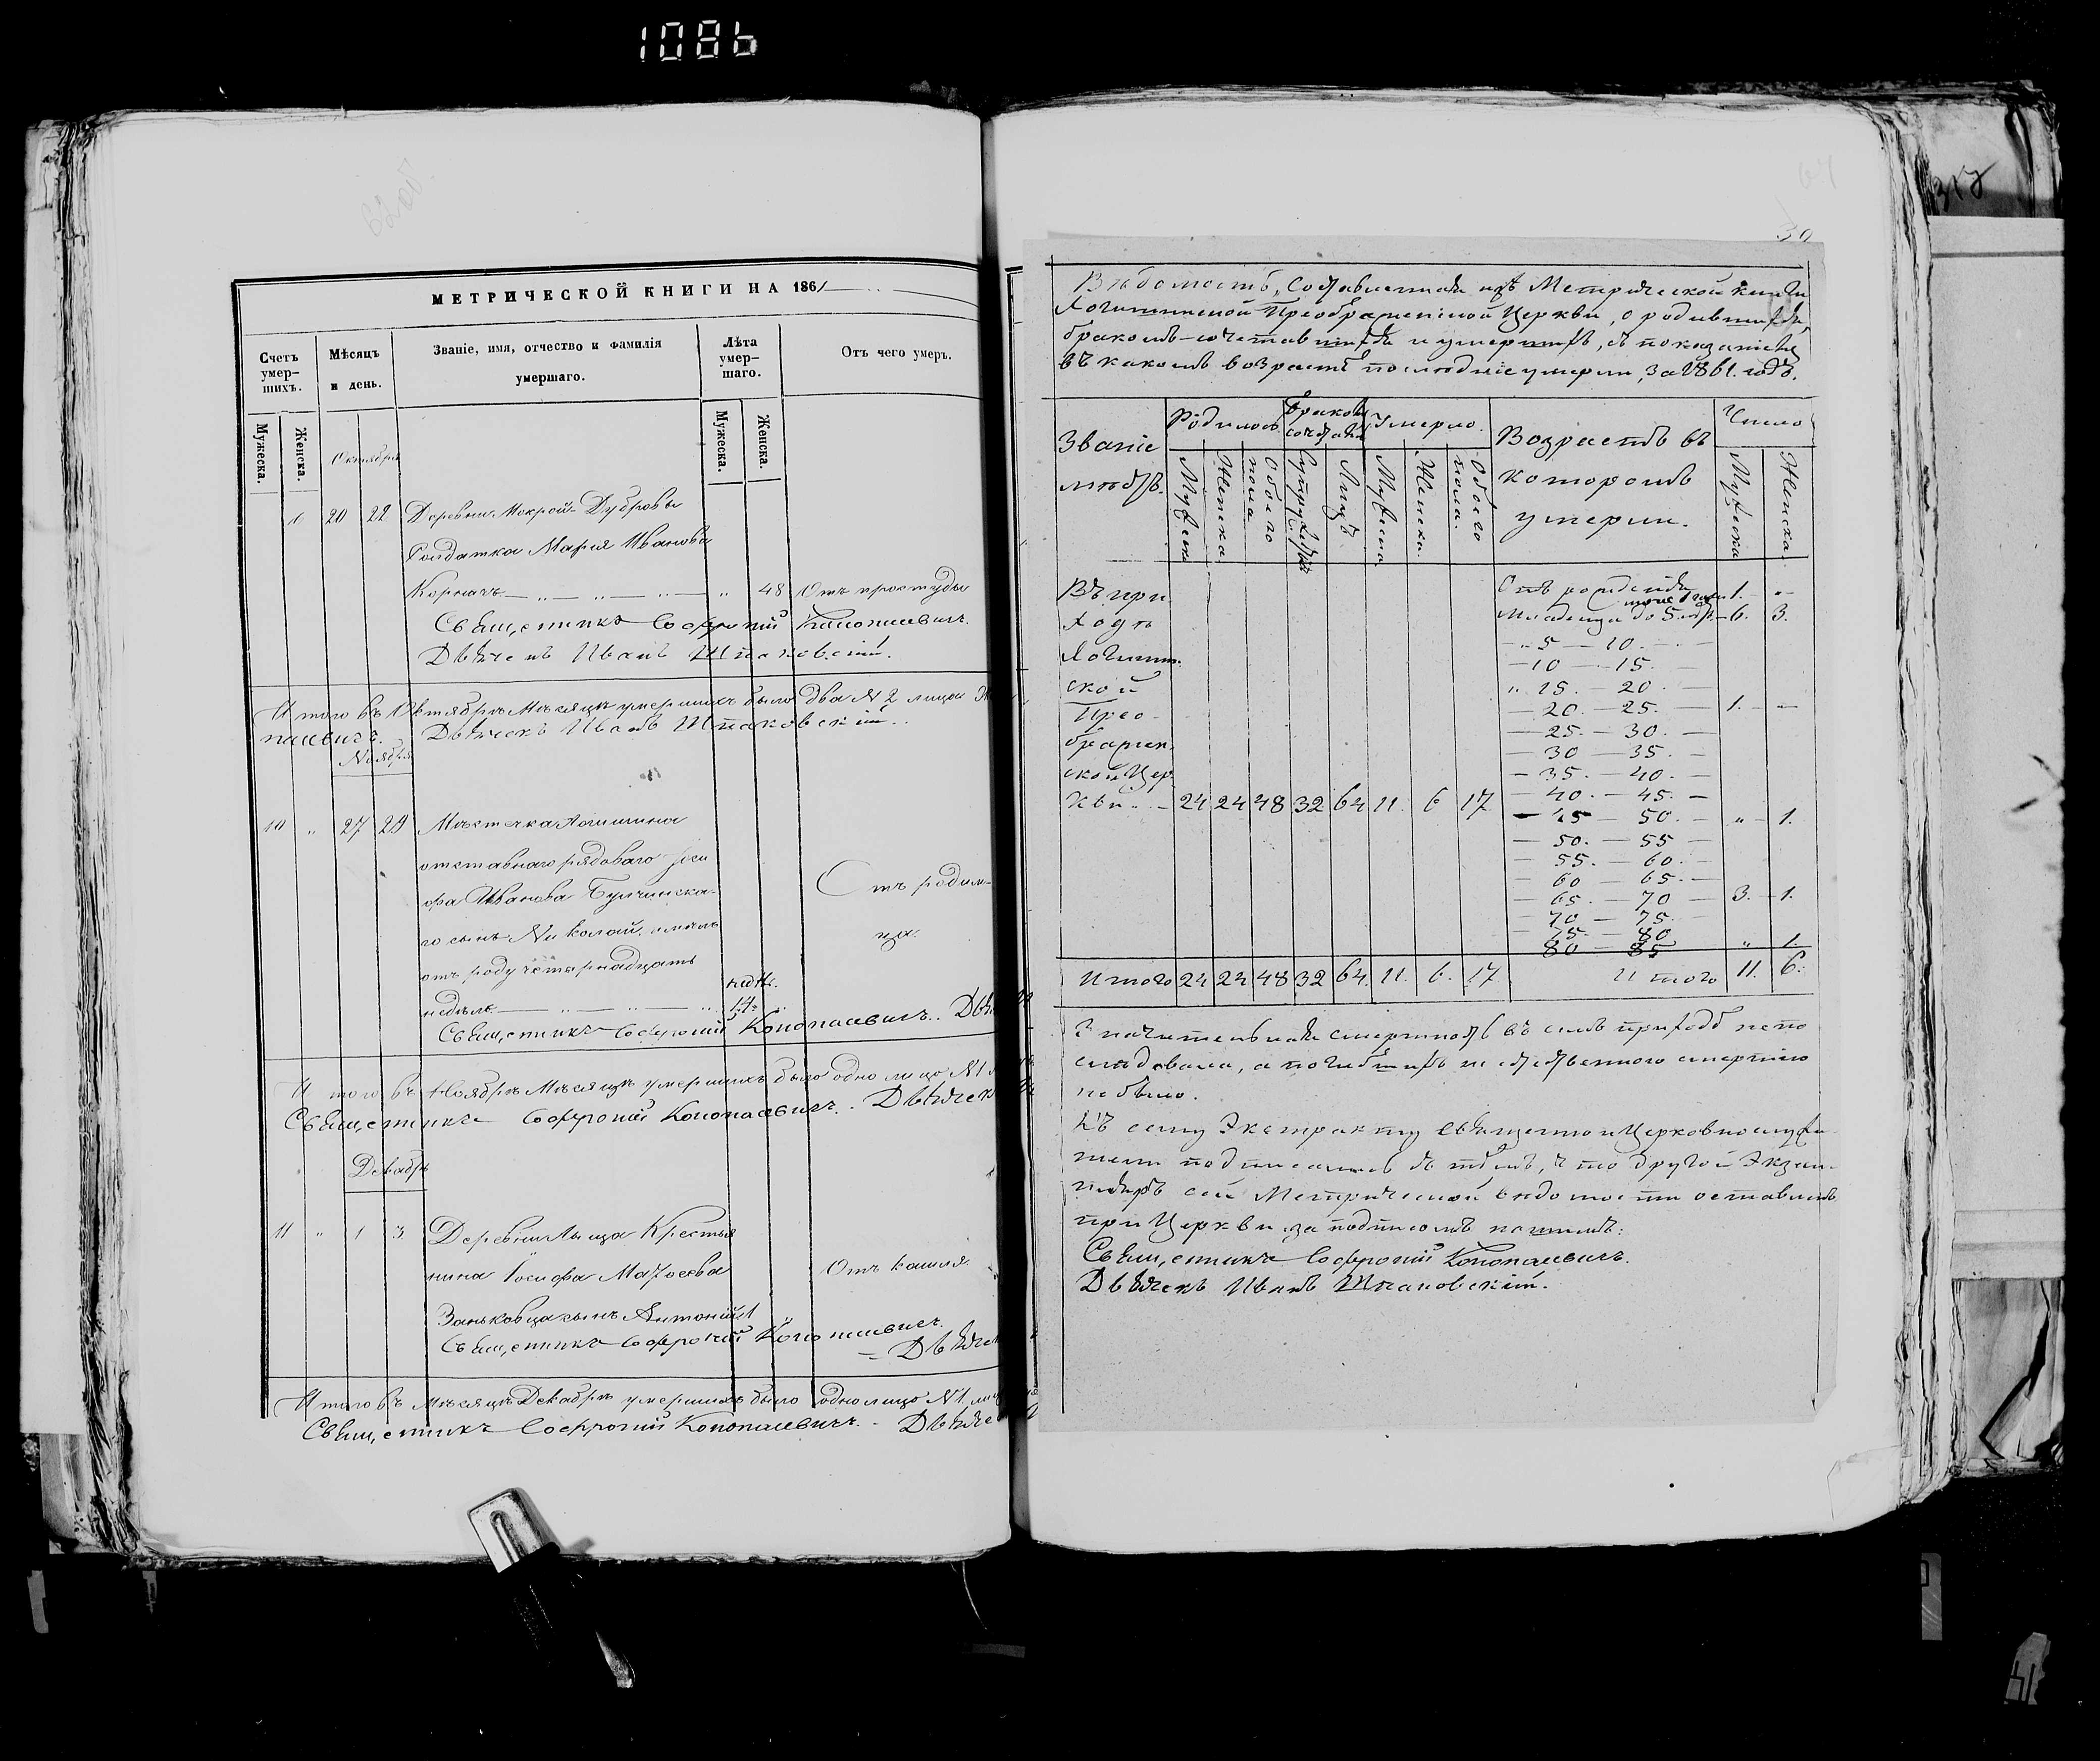 1086
МЕТРИЧЕСКОЙ КНИГИ НА 1861
Счетъ умер-шихъ.
Мѣсяцъ и день.
Званіе, имя, отчество и фамилія умершаго.
Лѣта умер-шаго.
Отъ чего умеръ.
Мужеска.
Женска.
Мужеска.
Женска.
Октябрь
20 22 Деревни Мокрой-Дубровы
Солдатка Марія Иванова
„ 48 Отъ простуды
Священникъ Софроній Конопасевичъ.
Дьячекъ Иванъ Шпаковскій.
Итого въ Октябрѣ Мѣсяцѣ умершихъ было два № 2 лица
пасевичъ. Дьячекъ Иванъ Шпаковскій.
Ноябрь
10 „ 27 29 Мѣстечка Логишина
отставнаго рядоваго Іоси
фа Иванова
го сынъ Николай имѣлъ
отъ роду четырнадцать
недѣль 14 „
недѣ.
Отъ родим-
ца.
Священникъ Софроній Конопасевичъ. Дья
Итого въ Ноябрѣ Мѣсяцѣ умершихъ было одно лицо № 1
Священникъ Софроній Конопасевичъ. Дьячекъ
Декабрь
11 „ 1 3 Деревни Крестья
нина Іосифа Маѳоеева
Заньковца сынъ Антоній 1 „
Отъ кашля.
Священникъ Софроній Конопасевичъ.
Дьячек
Итого въ Мѣсяцѣ Декабрѣ умершихъ было одно лицо № 1
Священникъ Софроній Конопасевичъ. Дьяче
Вѣдомость, составленная изъ Метрической книги
Логишинской Преображенской Церкви, о родившихся,
бракомъ-сочетавшихся и умершихъ, съ показаніемъ
въ какомъ возрастѣ послѣдніе умерли, за 1861. годъ.
Званіе мѣстъ.
Родилось
Бракомъ сочетал.
Умерло.
Возрастъ въ которомъ умерли.
Число
Мужеска
Женска
Обоего пола
Лицъ
Мужеска
Женска.
Обоего пола.
Мужеска
Женска
Въ при
ходѣ
Логишин.
ской
Прео-
бражен.
ской Цер
кви 24 24 48 32 64 11. 6 17
Отъ рожденія 1. -
Младенца до 5. лѣтъ 6. 3.
5 — 10.
10 — 15.
15. — 20
20. — 25. 1. -
25. — 30.
30 — 35.
35. — 40.
40. — 45.
45 — 50. „ 1.
50. — 55
55. — 60.
60 — 65.
65. — 70 3. 1.
70 — 75.
75. — 80
80 — 85 „ 1.
Итого 24 24 48 32 64. 11. 6. 17 Итого 11. 6.
Значительная смертность въ семъ приходѣ непо
слѣдовала, а погибшихъ неестественною смертію
не было.
Къ сему Экстракту Священно и Церковнослужи-
тели подписались съ тѣмъ, что другой Экзем-
пляръ сей Метрической вѣдомости оставленъ
при Церкви за подписомъ нашимъ:
Священникъ Софроній Конопасевичъ.
Дьячекъ Иванъ Шпаковскій.